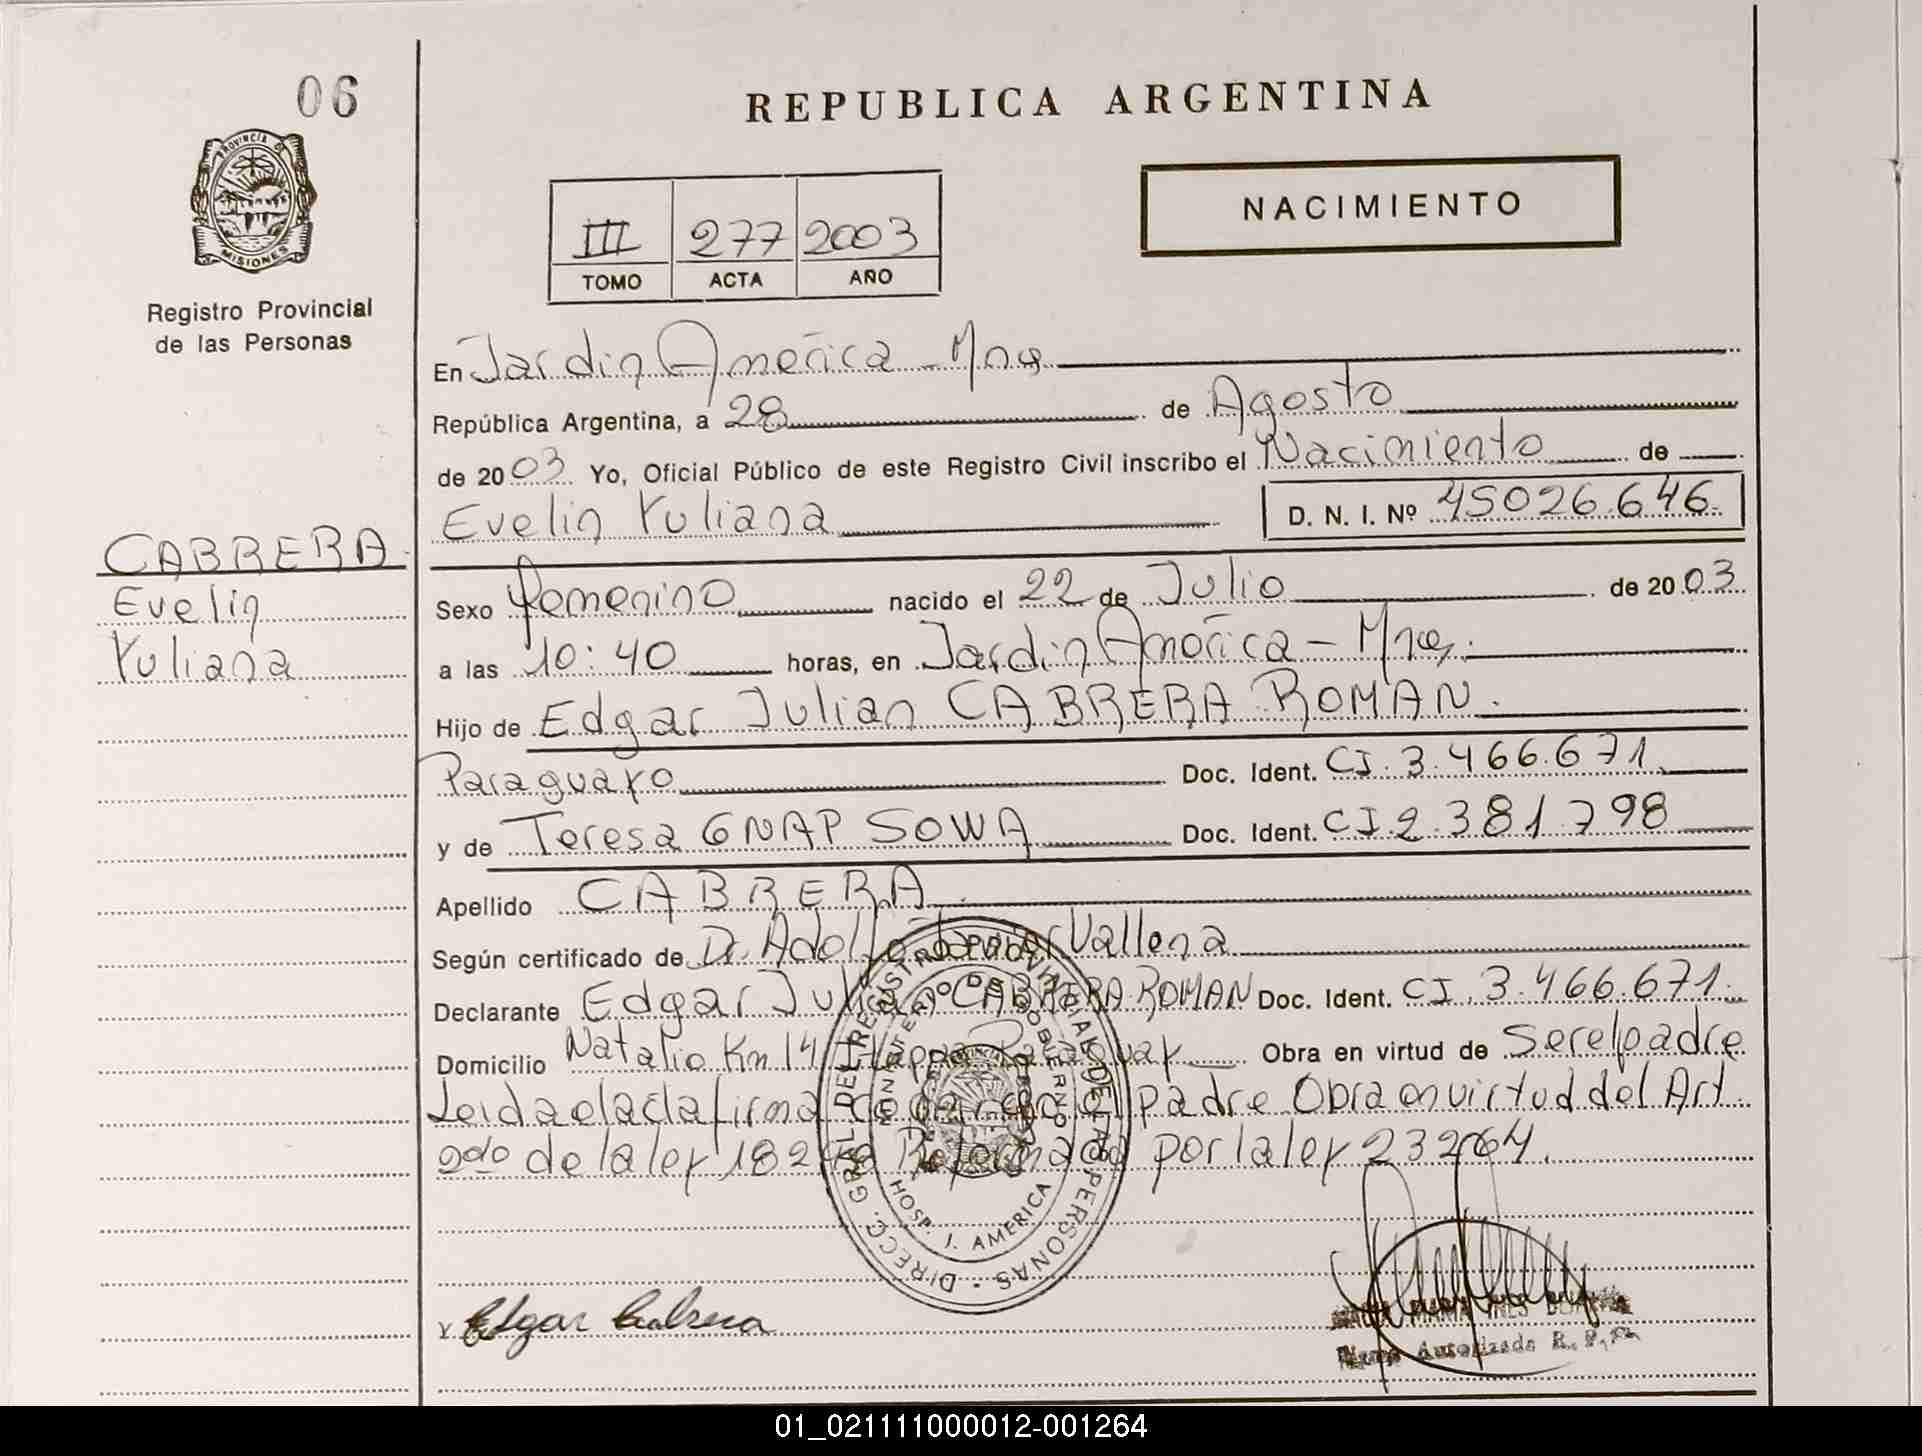 06
PROVINCIA DE
MISIONES
Registro Provincial
de las Personas
CABRERA
Evelin
Yuliana
REPUBLICA ARGENTINA
III 277 2003
TOMO ACTA AÑO
NACIMIENTO
En Jardin America - Mnes
República Argentina, a 28 de Agosto
de 2003 Yo, Oficial Público de este Registro Civil inscribo el Nacimiento de
Evelin Yuliana D. N. I. Nº 45026.646
Sexo Femenino nacido el 22 de Julio de 2003
a las 10:40 horas, en Jardin America - Mnes.
Hijo de Edgar Julian CABRERA ROMAN.
Paraguayo Doc. Ident. CI. 3.466.671
y de Teresa GNAP SOWA Doc. Ident. CI 2.381.798
Apellido CABRERA
Según certificado de Dr. Adolfo Javier Vallena
Declarante Edgar Julian CABRERA ROMAN Doc. Ident. CI. 3.466.671.
Domicilio Natalio Km 14 Itapua Paraguay Obra en virtud de ser el padre
Leida el acta firma el padre Obra en virtud del Art.
2do de la ley 18248 Reformada por la ley 23264.
DIRECC. GRAL. DEL REGISTRO PROVINCIAL DE LAS PERSONAS
MINISTERIO DE GOBIERNO
HOSP. J. AMERICA
Edgar Cabrera
MARIA INES
Autorizada R. P. P.
01_021111000012-001264